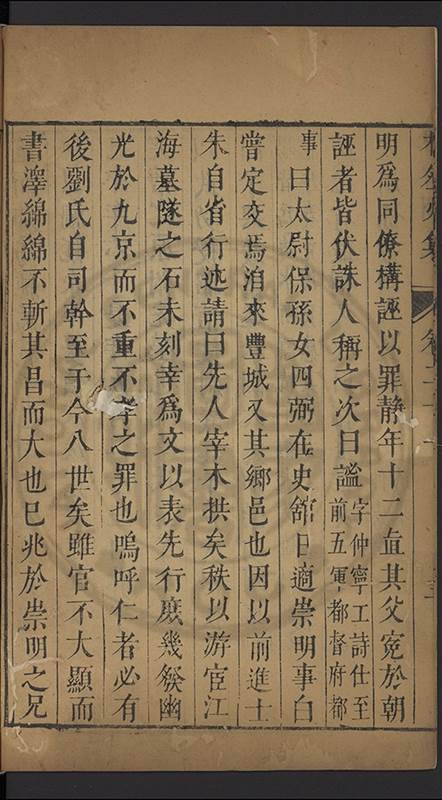 明爲同僚搆誣以罪静年十二直其父寃於朝
誣者皆伏誅人稱之次曰謐字仲寧工詩仕至
前五軍都督府都
事曰太尉保孫女四弼在史舘日適崇明事白
甞定交焉洎來豐城又其鄉邑也因以前進士
朱自省行述請曰先人宰木拱矣秩以游宦江
海墓隧之石未刻幸爲文以表先行庶幾發幽
光於九京而不重不孝之罪也嗚呼仁者必有
後劉氏自司幹至于今八世矣雖官不大顯而
書澤綿綿不斬其昌而大也已兆於崇明之兄